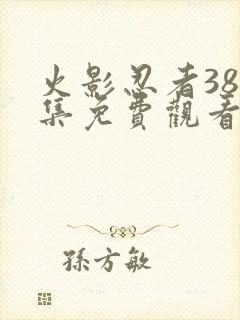 火影忍者38
集免費觀看
孫方敏